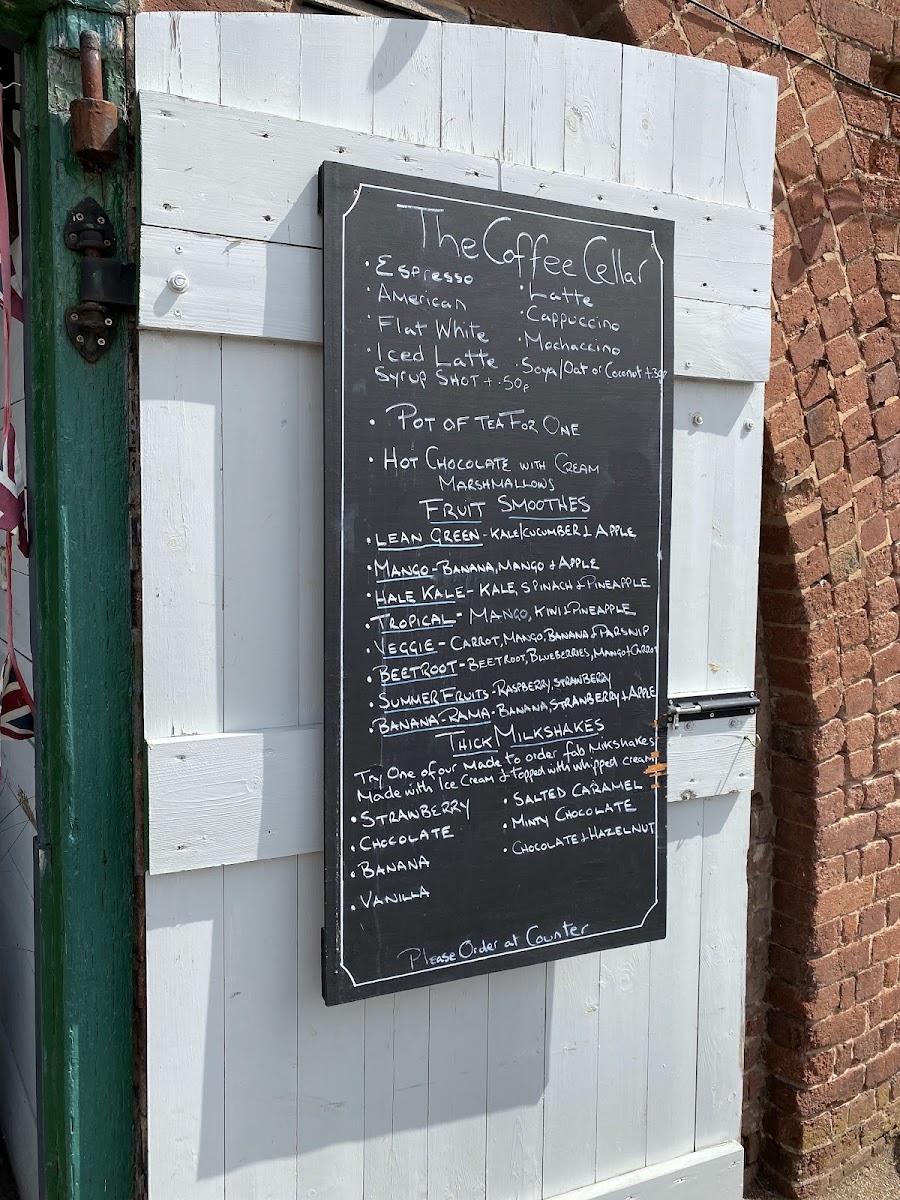 The Coffee Cellar
· Espresso
· American
· Flat White
· Iced Latte
Syrup SHOT + .50p
· Latte
· Cappuccino
· Mochaccino
· Soya/Oat or Coconut +30p
· POT OF TEA FOR ONE
· HOT CHOCOLATE WITH CREAM
MARSHMALLOWS
FRUIT SMOOTHES
· LEAN GREEN - KALE/CUCUMBER & APPLE
· MANGO - BANANA, MANGO & APPLE
· HALE KALE - KALE, SPINACH & PINEAPPLE
· TROPICAL - MANGO, KIWI & PINEAPPLE
· VEGGIE - CARROT, MANGO, BANANA & PARSNIP
· BEETROOT - BEETROOT, BLUEBERRIES, MANGO & CARROT
· SUMMER FRUITS - RASPBERRY, STRAWBERRY
· BANANA-RAMA - BANANA STRANBERRY & APPLE
THICK MILKSHAKES
Try One of our Made to order fab Milkshakes
Made with Ice Cream & topped with whipped cream
· STRAWBERRY
· CHOCOLATE
· BANANA
· VANILLA
· SALTED CARAMEL
· MINTY CHOCOLATE
· CHOCOLATE & HAZELNUT
Please Order at Counter